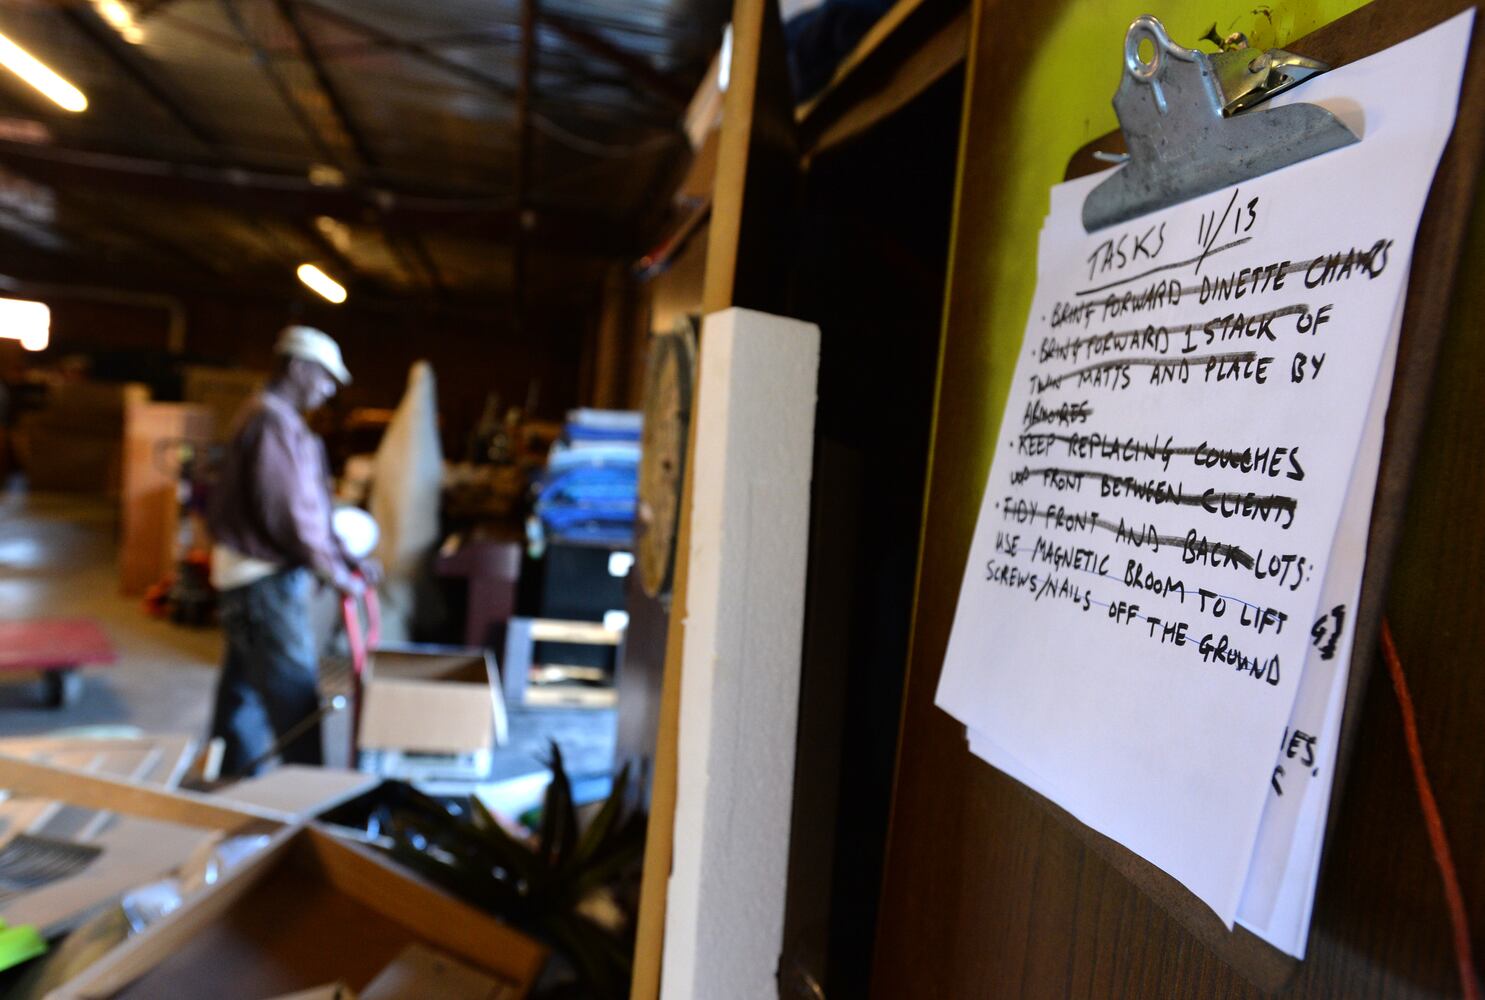 TASKS 11/13
· BRING FORWARD DINETTE CHAIRS
· BRING FORWARD 1 STACK OF
TWIN MATTS AND PLACE BY
ARMOIRES
· KEEP REPLACING COUCHES
UP FRONT BETWEEN CLIENTS
· TIDY FRONT AND BACK LOTS:
USE MAGNETIC BROOM TO LIFT
SCREWS/NAILS OFF THE GROUND
IES.